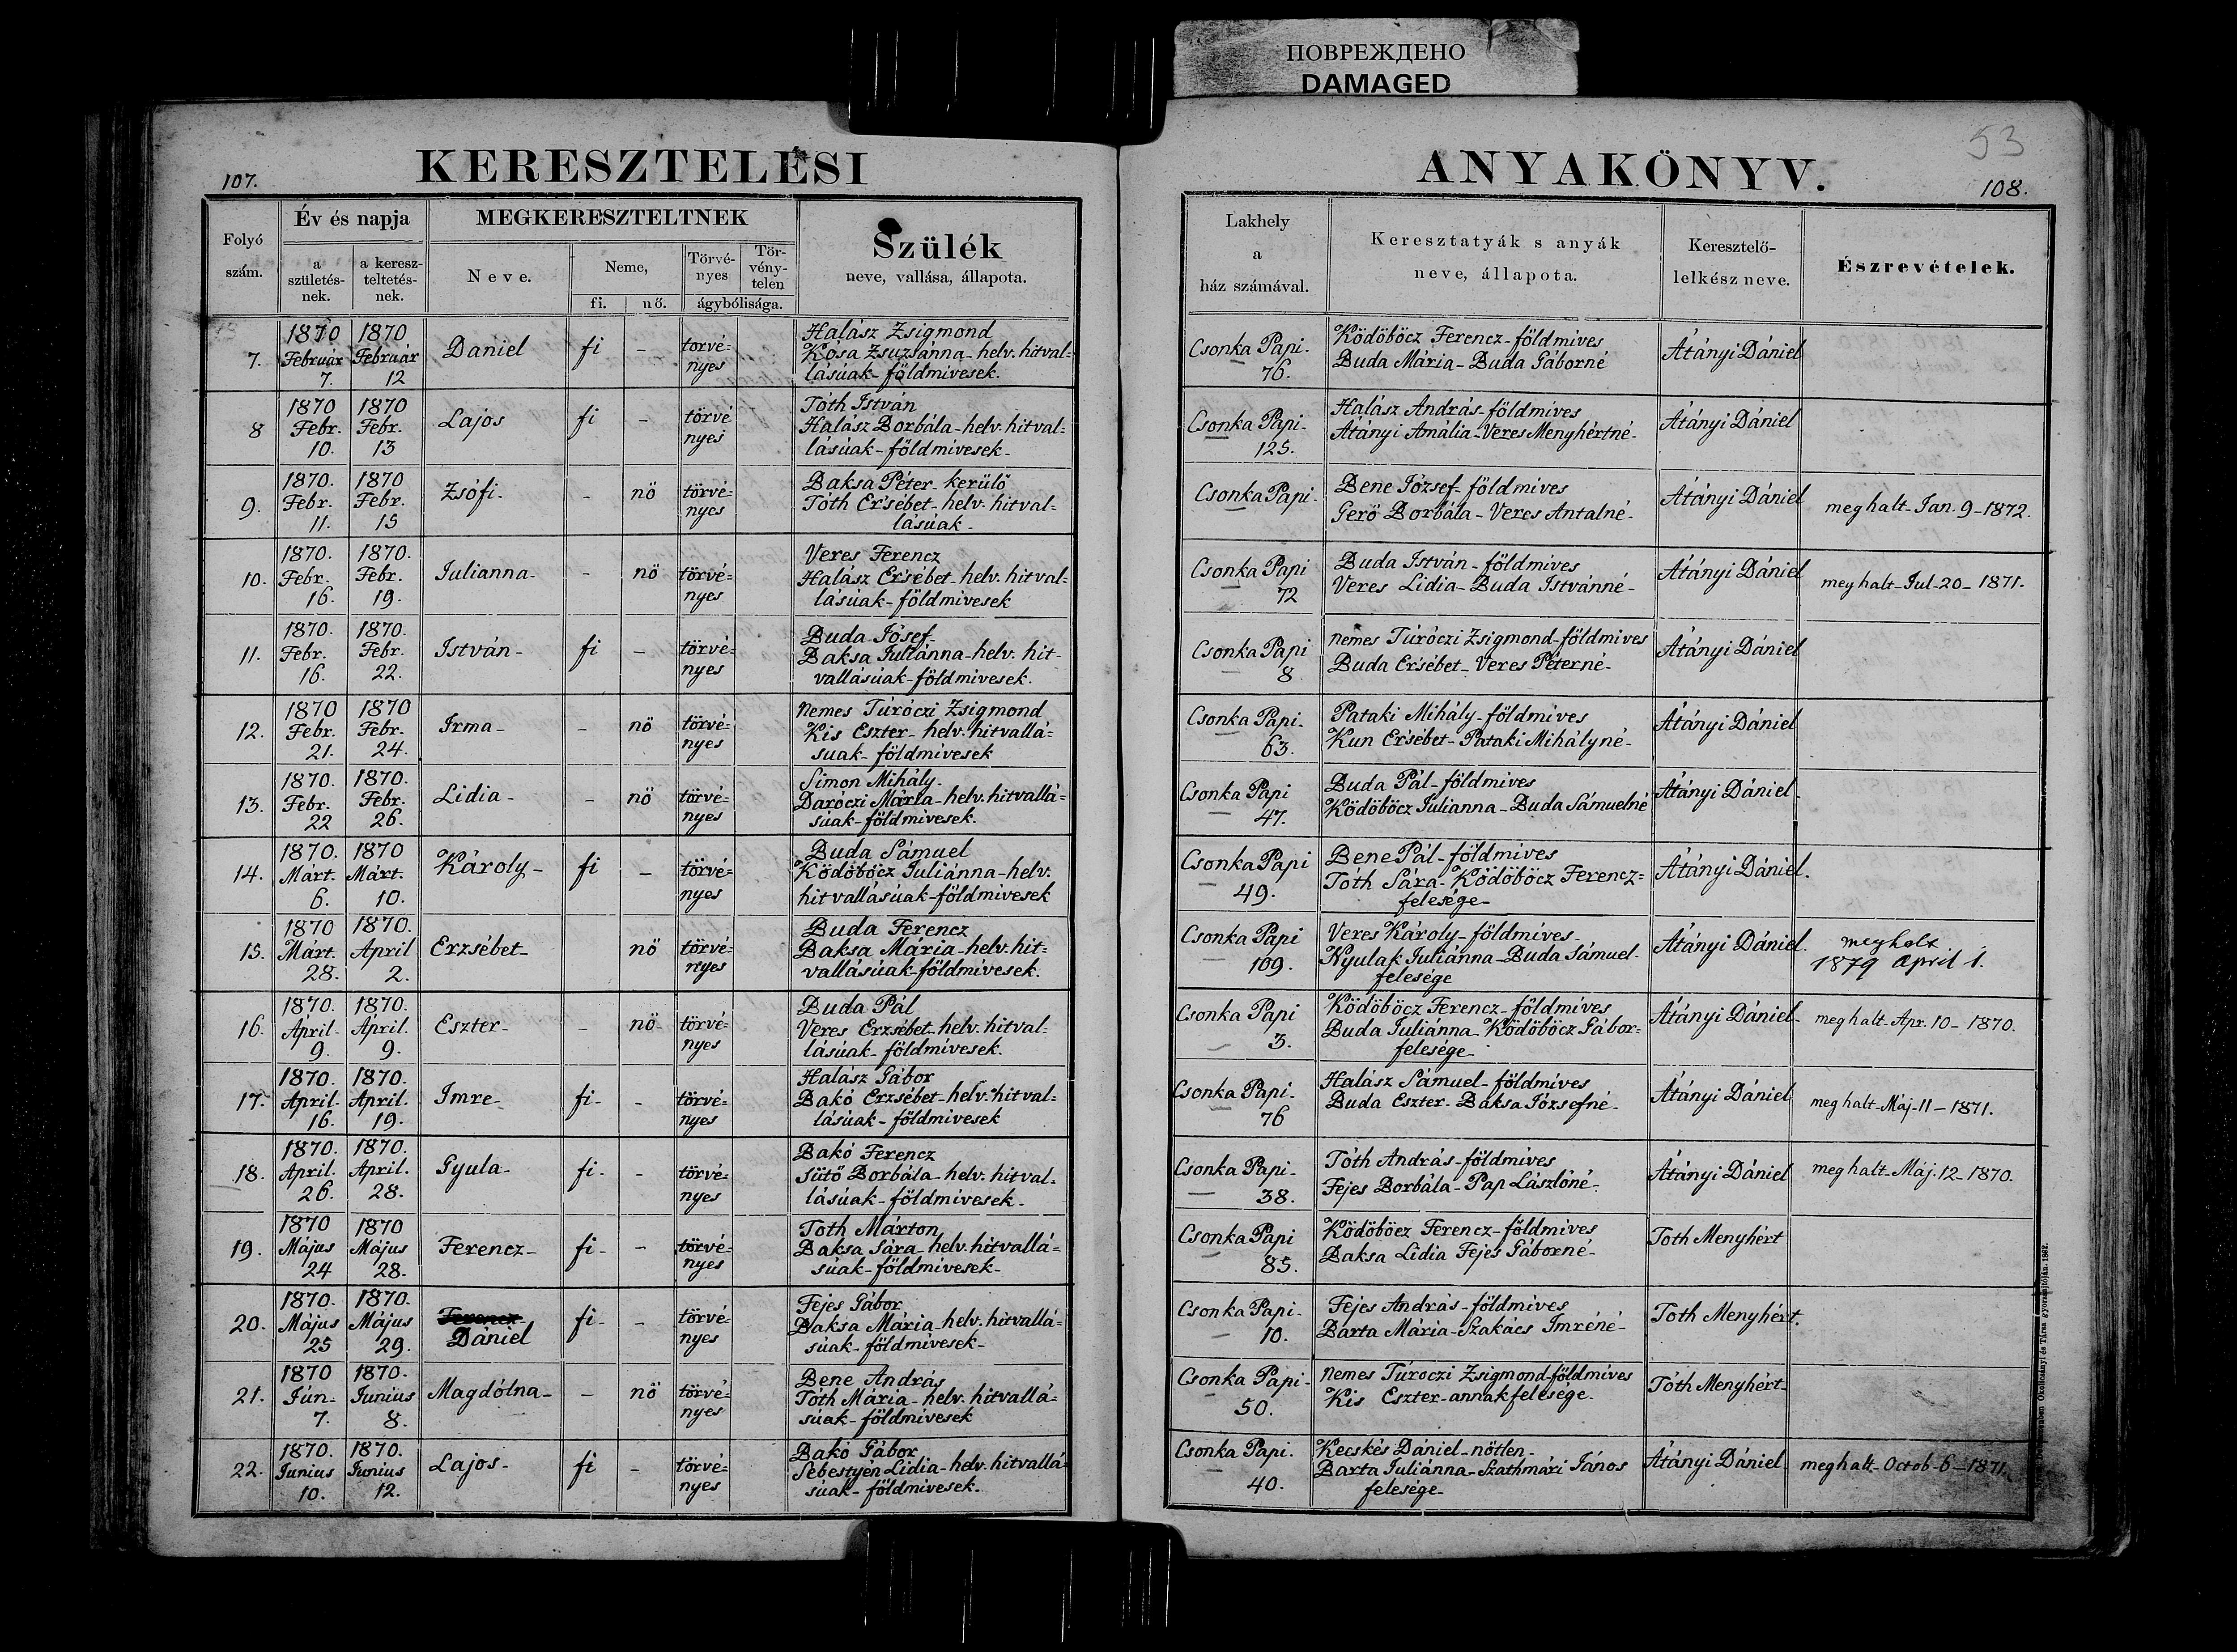 ПОВРЕЖДЕНО
DAMAGED
53
107.
KERESZTELÉSI
ANYAKÖNYV.
108.
Folyó
szám.
Év és napja
a
születés-
nek.
a keresz-
teltetés-
nek.
MEGKERESZTELTNEK
Neve.
Neme,
fi.
nő.
Törvé-
nyes
Tör-
vény-
telen
ágybólisága.
Szülék
neve, vallása, állapota.
Lakhely
a
ház számával.
Keresztatyák s anyák
neve, állapota.
Keresztelő-
lelkész neve.
Észrevételek.
7.
1870
Február
7.
1870
Február
12
Daniel
fi
-
torvé=
nyes
Halász Zsigmond
Kósa Zsuzsánna- helv. hitval=
lásúak- földmivesek.
Csonka Papi-
76.
Ködöböcz Ferencz-földmíves
Buda Mária- Buda Gáborné
Átányi Dániel
8
1870
Febr.
10.
1870
Febr.
13
Lajos
fi
-
törvé
nyes
Tóth István
Halász Borbála-helv. hitval=
lásúak-földmívesek-
Csonka Papi-
125.
Halász András-földmíves
Átányi Amália-Veres Menyhértné-
Átányi Dániel
9.
1870.
Febr.
11.
1870
Febr.
15
Zsófi-
-
nö
törvé=
nyes
Baksa Péter- kerülő
Tóth Ersébet- helv. hitval=
lásúak-
Csonka Papi-
Bene József- földmíves
Gerö Borbála- Veres Antalné-
Átányi Dániel
meghalt- Jan. 9-1872.
10.
1870.
Febr.
16.
1870.
Febr.
19.
Iulianna-
-
nö
törvé=
nyes
Veres Ferencz
Halász Ersébet- helv. hitval=
lásúak-földmívesek
Csonka Papi
72
Buda István- földmíves
Veres Lidia- Buda Istvánné-
Átányi Dániel
meghalt-Jul-20-1871.
11.
1870.
Febr.
16.
1870.
Febr.
22.
István-
fi
-
törvé=
nyes
Buda Iósef-
Baksa Juliánna-helv. hit-
vallásúak-földmívesek.
Csonka Papi
8
nemes Túróczi Zsigmond-földmíves
Buda Ersébet- Veres Péterné-
Átányi Dániel
12.
1870
Febr.
21.
1870
Febr.
24.
Irma-
-
nö
törvé=
nyes
nemes Túróczi Zsigmond
Kis Eszter- helv. hitvallá=
suak- földmívesek
Csonka Papi-
63.
Pataki Mihály-földmíves
Kun Ersébet- Pataki Mihályné-
Átányi Dániel
13.
1870.
Febr.
22
1870.
Febr.
26.
Lidia-
-
nö
törvé=
nyes
Simon Mihály-
Daróczi Mária-helv. hitvallá=
súak-földmívesek.
Csonka Papi
47.
Buda Pál-földmíves
Ködöböcz Iulianna-Buda Sámuelné
Átányi Dániel-
14.
1870.
Márt.
6.
1870
Márt.
10.
Károly-
fi
-
törvé=
nyes
Buda Sámuel
Ködöböcz Juliánna-helv.
hitvallásúak-földmívesek
Csonka Papi
49.
Bene Pál-földmíves
Tóth Sára- Ködöböcz Ferencz=
felesége-
Átányi Dániel.
15.
1870
Márt.
28.
1870.
April
2.
Erzsébet-
nö
törvé=
nyes
Buda Ferencz
Baksa Mária-helv. hit=
vallásúak-földmívesek.
Csonka Papi
109.
Veres Károly-földmíves-
Nyulak Iulianna-Buda Sámuel-
felesége
Átányi Dániel.
meghalt
1879 April 1.
16.
1870.
April-
9.
1870.
April.
9.
Eszter-
-
nö-
törvé=
nyes
Buda Pál
Veres Erzsébet-helv. hitval=
lásúak- földmívesek.
Csonka Papi
3.
Ködöböcz Ferencz-földmíves
Buda Juliánna- Ködöböcz Gábor=
felesége-
Átányi Dániel-
meghalt-Apr. 10- 1870.
17.
1870.
April-
16.
1870.
April.
19.
Imre-
fi-
-
törvé=
nyes
Halász Gábor
Bakó Erzsébet-helv. hitval=
lásúak- földmívesek
Csonka Papi-
76
Halász Sámuel- földmíves
Buda Eszter- Baksa Józsefné-
Átányi Dániel
meghalt-Máj-11-1871.
18.
1870.
April.
26.
1870.
April.
28.
Gyula-
fi-
-
törvé=
nyes
Bakó Ferencz
Sütő Borbála- helv. hitval=
lásúak-földmívesek-
Csonka Papi-
38.
Tóth András-földmíves
Fejes Borbála- Pap Lászlóné-
Átányi Dániel
meghalt-Máj. 12-1870.
19.
1870
Május
24
1870
Május
28.
Ferencz-
fi-
-
törvé=
nyes
Toth Márton
Baksa Sára- helv. hitvallá=
súak-földmívesek-
Csonka Papi
85.
Ködöböcz Ferencz-földmíves
Baksa Lidia Fejes Gáborné-
Toth Menyhért
20.
1870.
Május
25
1870.
Május
29.
Ferencz-
Dániel
fi-
-
törvé=
nyes
Fejes Gábor
Baksa Mária-helv. hitvallá=
súak-földmívesek-
Csonka Papi-
10.
Fejes András-földmíves
Barta Mária-Szakács Imréné-
Toth Menyhért.
21.
1870
Jún-
7.
1870.
Iunius
8.
Magdólna-
-
nö
törvé=
nyes
Bene András
Tóth Mária- helv. hitvallá=
súak-földmívesek
Csonka Papi-
50.
nemes Túroczi Zsigmond-földmíves
Kis Eszter-annak felesége.
Tóth Menyhért-
22.
1870.
Iunius
10.
1870.
Iunius
12.
Lajos-
fi
-
törvé=
nyes
Bakó Gábor
Sebestyén Lidia-helv. hitvallá=
súak- földmívesek-
Csonka Papi.
40.
Kecskés Dániel-nötlen-
Barta Juliánna-Szathmári János
felesége-
Átányi Dániel-
meghalt-Octob-6-1871.